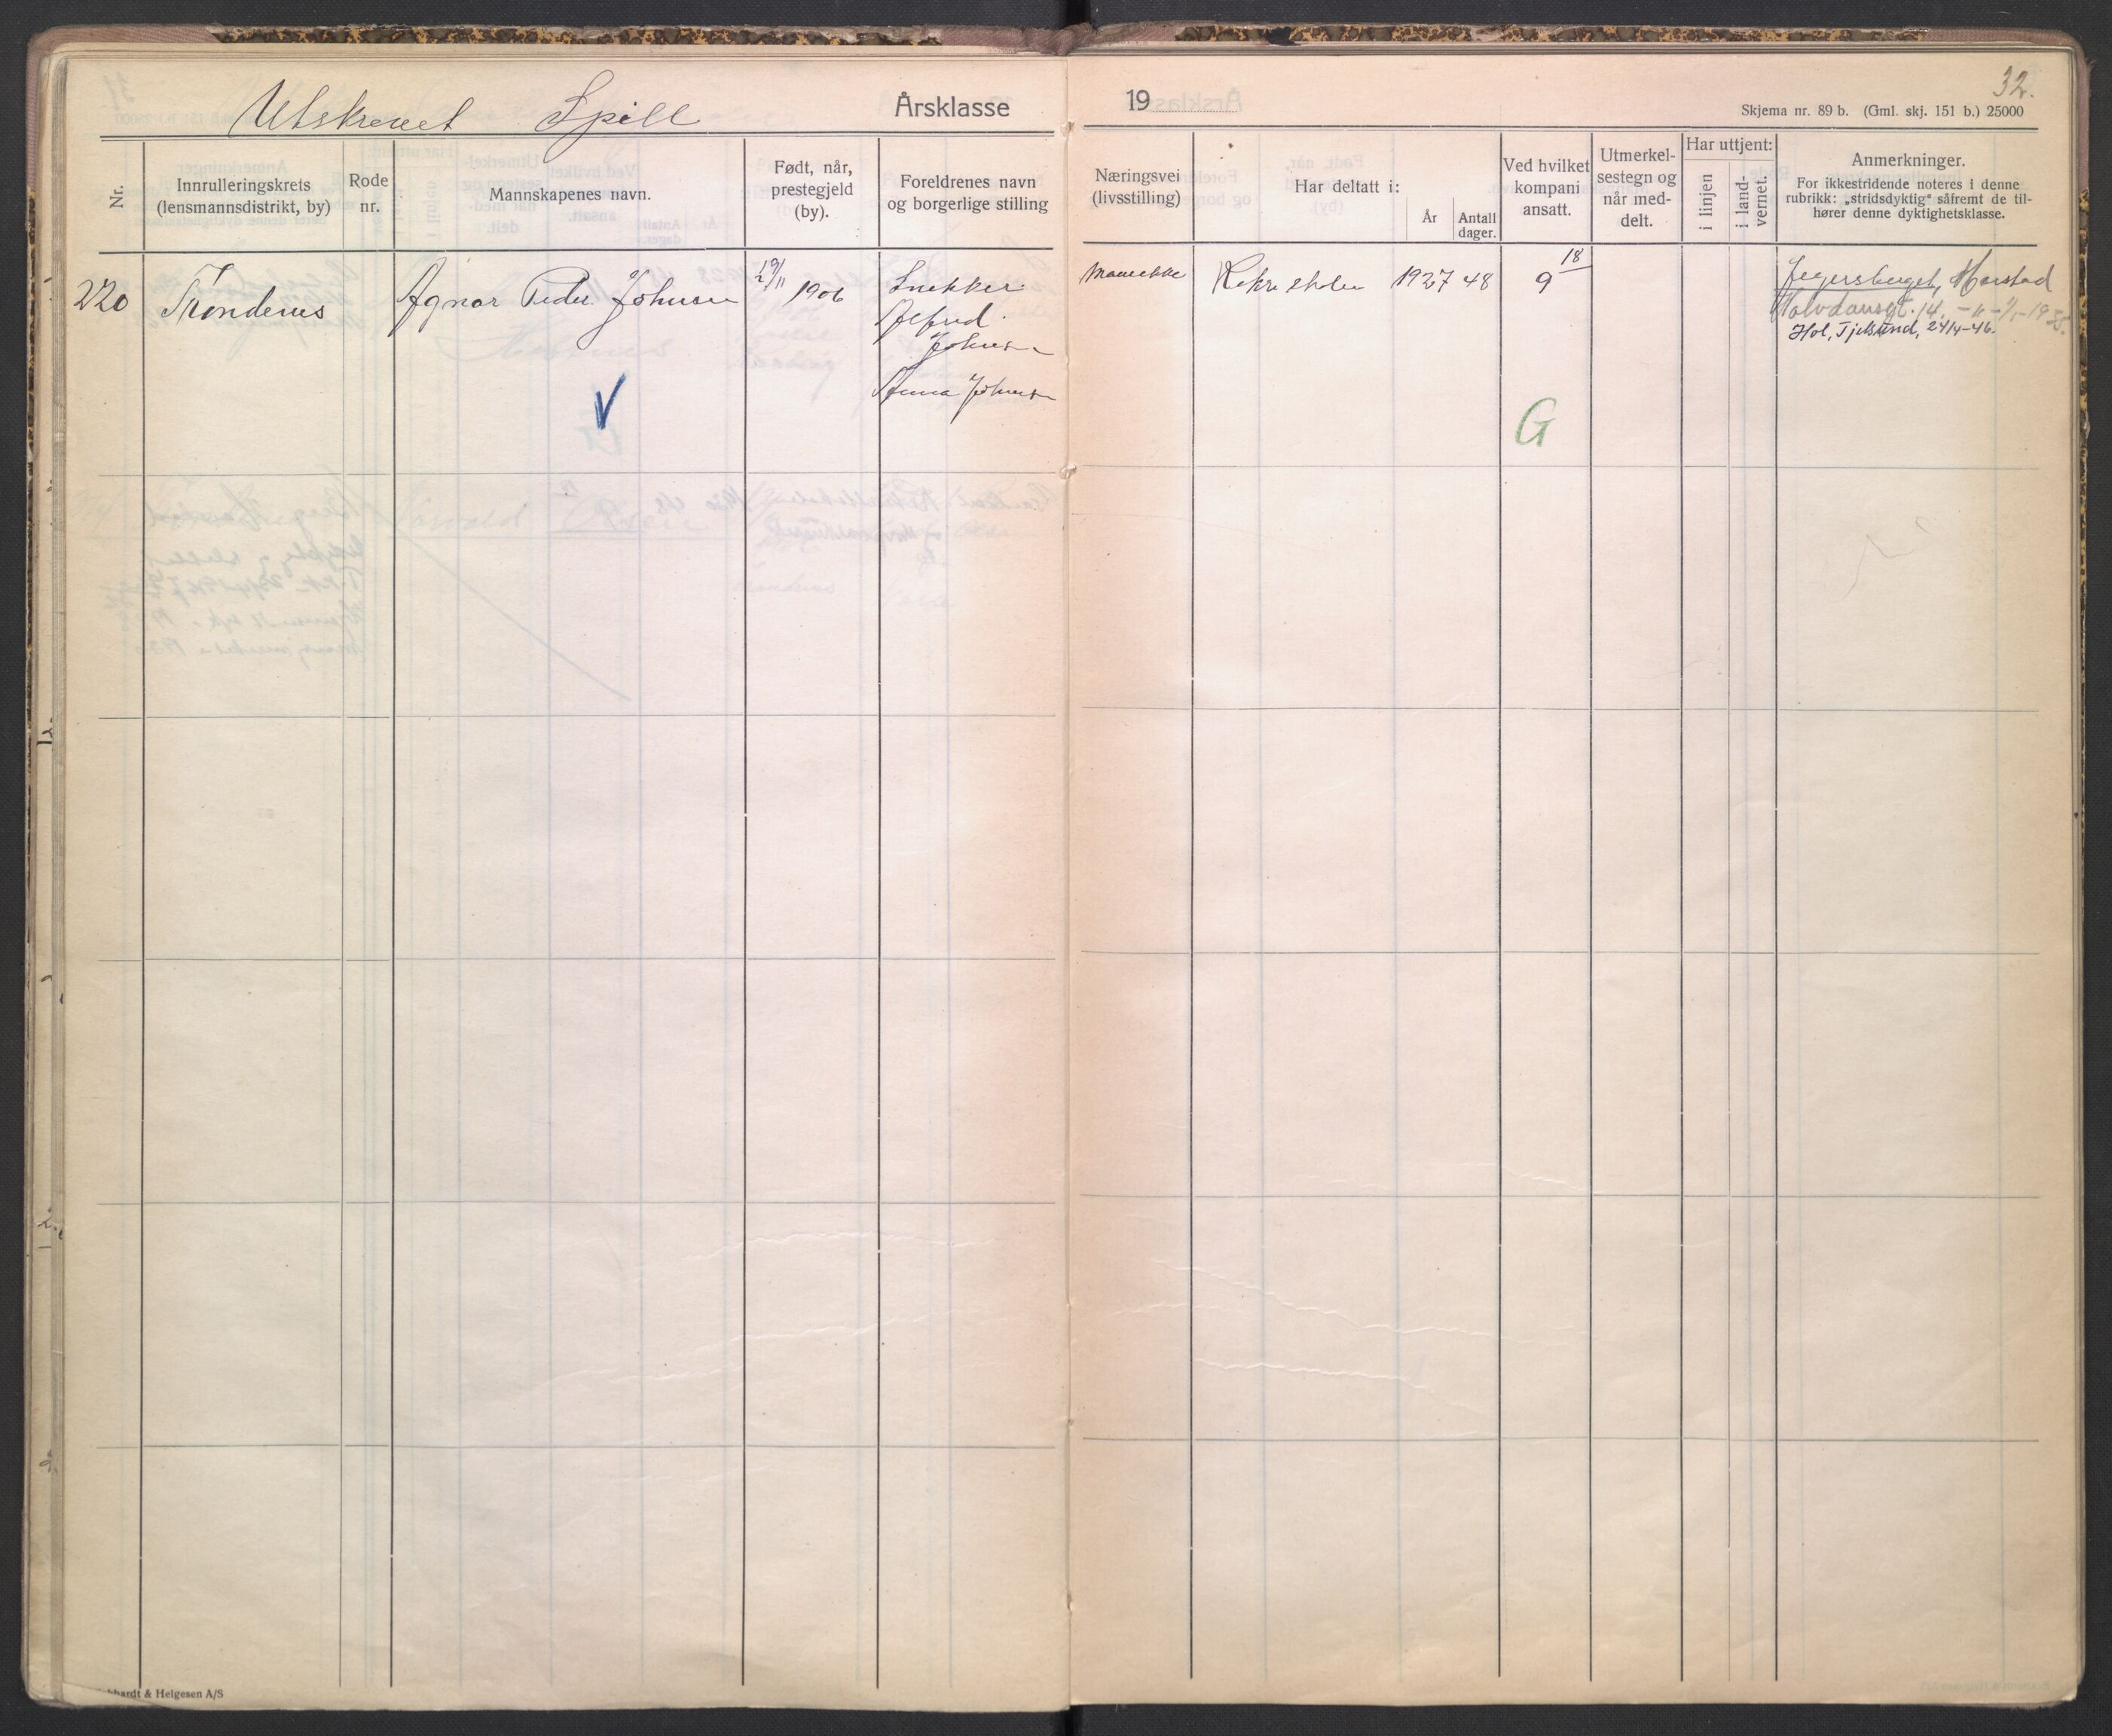 Utskrevet Spill Årsklasse
Nr.
Innrulleringskrets
(lensmannsdistrikt, by)
Rode
nr.
Mannskapenes navn.
Født, når,
prestegjeld
(by).
Foreldrenes navn
og borgerlige stilling
220 Trondenes Agnar Peder Johnsen 19/11 1906 Snekker
Alfred
Johnsen
Anna Johnsen
V
& Helgesen A/S
19
32.
Skjema nr. 89 b. (Gml. skj. 151 b.) 25000
Næringsvei
(livsstilling)
Har deltatt i:
År
Antall
dager.
Ved hvilket
kompani
ansatt.
Utmerkel-
sestegn og
når med-
delt.
Har uttjent:
i linjen
i land-
vernet.
Anmerkninger.
For ikkestridende noteres i denne
rubrikk: „stridsdyktig" såfremt de til-
hører denne dyktighetsklasse.
Rekruskolen 1927 48
18
9
Jegersberget, Harstad
14. - " - 1/1-1935.
Hol, Tjelsund, 24/4-46.
G